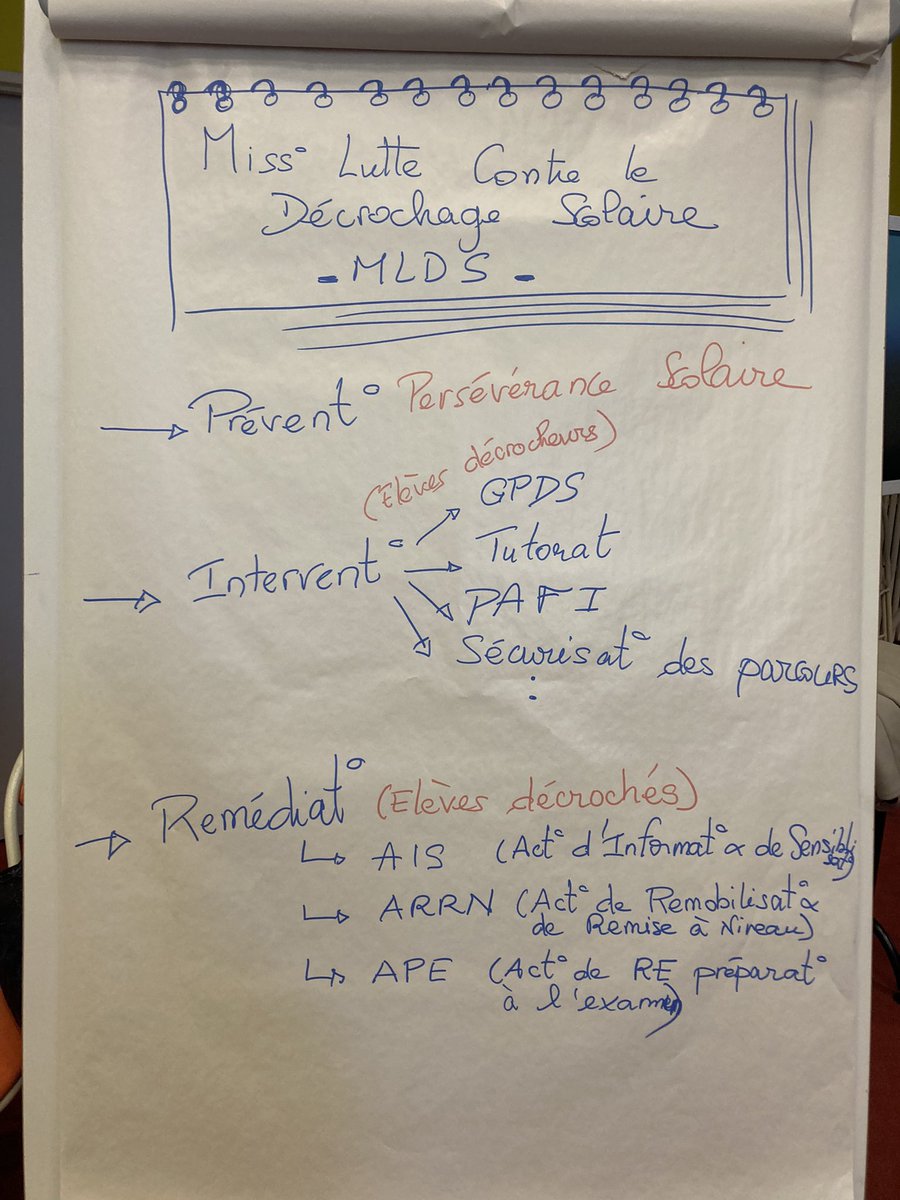 Miss° Lutte Contre le
Décrochage Scolaire
- MLDS -
→ Prévent° Persévérance Scolaire
(Elèves décrocheurs)
→ Intervent° → GPDS
→ Tutorat
→ PAFI
→ Sécurisat° des parcours
:
→ Remédiat° (Elèves décrochés)
↳ AIS (Act° d'Informat° & de Sensibilisat°)
↳ ARRN (Act° de Remobilisat° &
de Remise à Niveau)
↳ APE (Act° de RE préparat°
à l'examen)